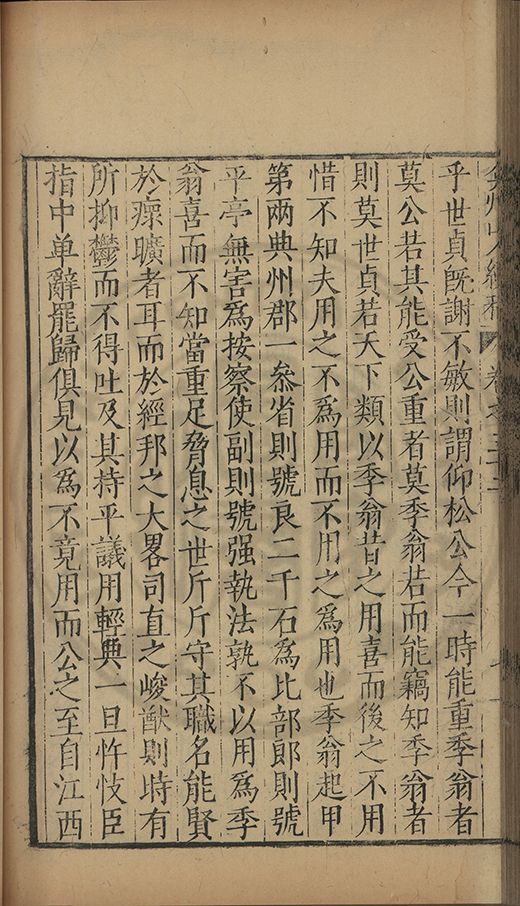 弇州山人續稿 卷之三十二
乎世貞既謝不敏則謂仰松公今一時能重季翁者
莫公若其能受公重者莫季翁若而能竊知季翁者
則莫世貞若天下類以季翁昔之用喜而後之不用
惜不知夫用之不為用而不用之為用也季翁起甲
第两典州郡一叅省則號良二千石為比部郎則號
平亭無害為按察使副則號强執法孰不以用為季
翁喜而不知當重足脅息之世斤斤守其職名能賢
於瘝曠者耳而於經邦之大畧司直之峻猷則時有
所抑鬱而不得吐及其持平議用輕典一旦忤忮臣
指中单辭罷歸俱見以為不竟用而公之至自江西